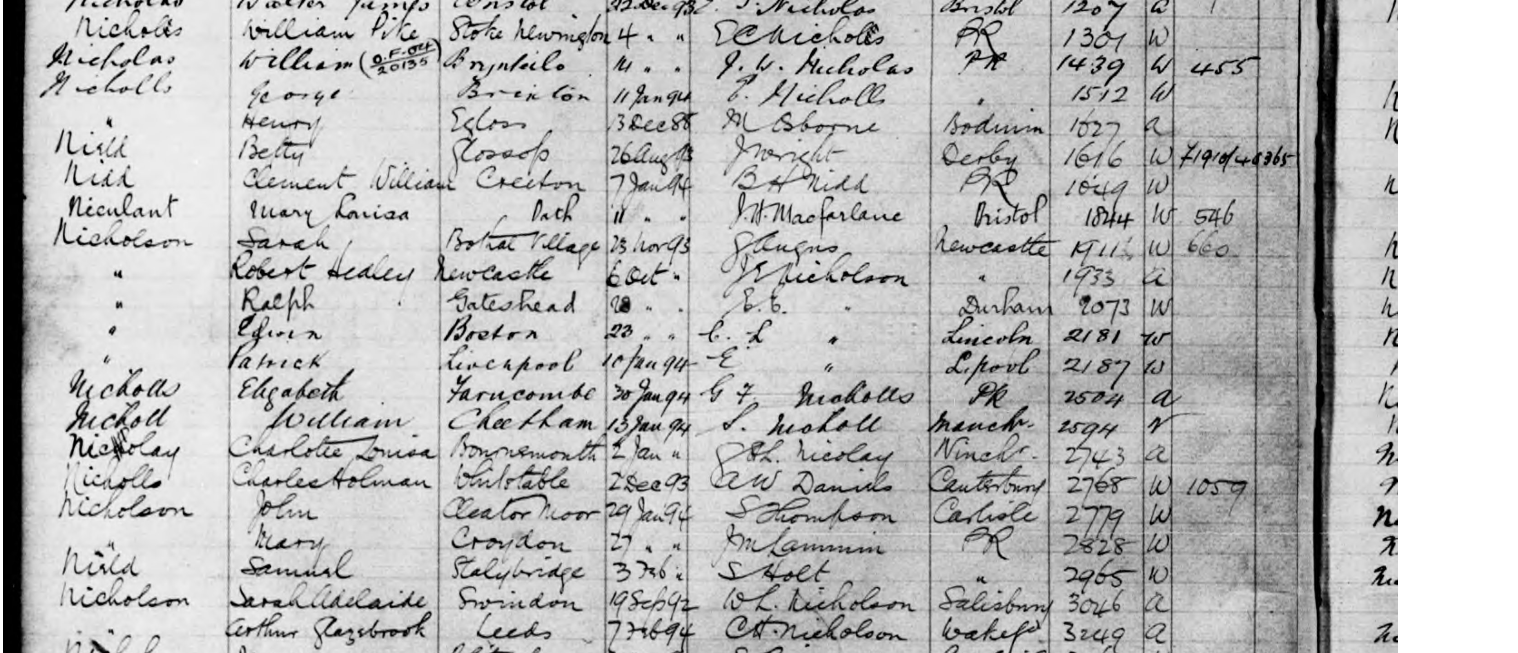 Nicholas Walter James Bristol 22 Dec 93 J. Nicholas Bristol 1207 a
Nicholls William Pike Stoke Newington 4 " " E C Nicholls PR 1301 W
Nicholas William (O.F. Oct 20135) Brynteilo 14 " " J. W. Nicholas PR 1439 W 455
Nicholls George Brixton 11 Jan 94 E. Nicholls " 1512 W
" Henry Egloss 13 Dec 88 M Osborne Bodmin 1627 a
Nield Betty Glossop 26 Aug 93 J Wright Derby 1616 W
Nidd Clement William Creeton 7 Jan 94 B H Nidd PR 1649 W
Niculant Mary Louisa Bath 11 " " J. H. Macfarlane Bristol 1844 W 546
Nicholson Sarah Bothal Village 23 Nov 93 J Angus Newcastle W 660
" Robert Hedley Newcastle 6 Oct " J E Nicholson " 1933 a
" Ralph Gateshead 28 " " E. E. " Durham 2073 W
" Edwin Boston 23 " " C. L " Lincoln 2181 W
" Patrick Liverpool Jan 94 E " Lpool 2187 W
Nicholls Elizabeth Farncombe 30 Jan 94 G F. Nicholls PR 2504 a
Nicholl William Cheetham 13 Jan 94 S. Nicholl Manchr. 2594 W
Nicholay Charlotte Louisa Bournemouth 2 Jan " G H L. Nicolay Winchr. 2743 a
Nicholls Charles Holman Whitstable 2 Dec 93 A W Daniels Canterbury 2768 W 1059
Nicholson John Cleator Moor 29 Jan 94 S Thompson Carlisle 2779 W
" Mary Croydon 27 " " J M Lammin PR 2828 W
Nield Samuel Stalybridge 3 Feb " S Holt " 2965 W
Nicholson Sarah Adelaide Swindon 19 Sep 92 W L. Nicholson Salisbury 3046 a
Arthur Glazebrook Leeds 7 Feb 94 C H. Nicholson Wakefd 3249 a